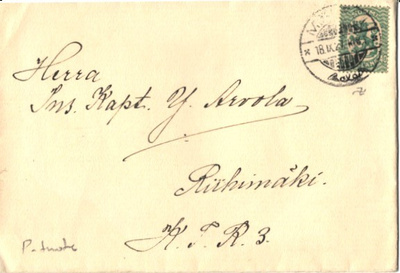 Herra
Ins. Kapt. Y. Arvola
Riihimäki.
K.T.R.3.
18.IX.2